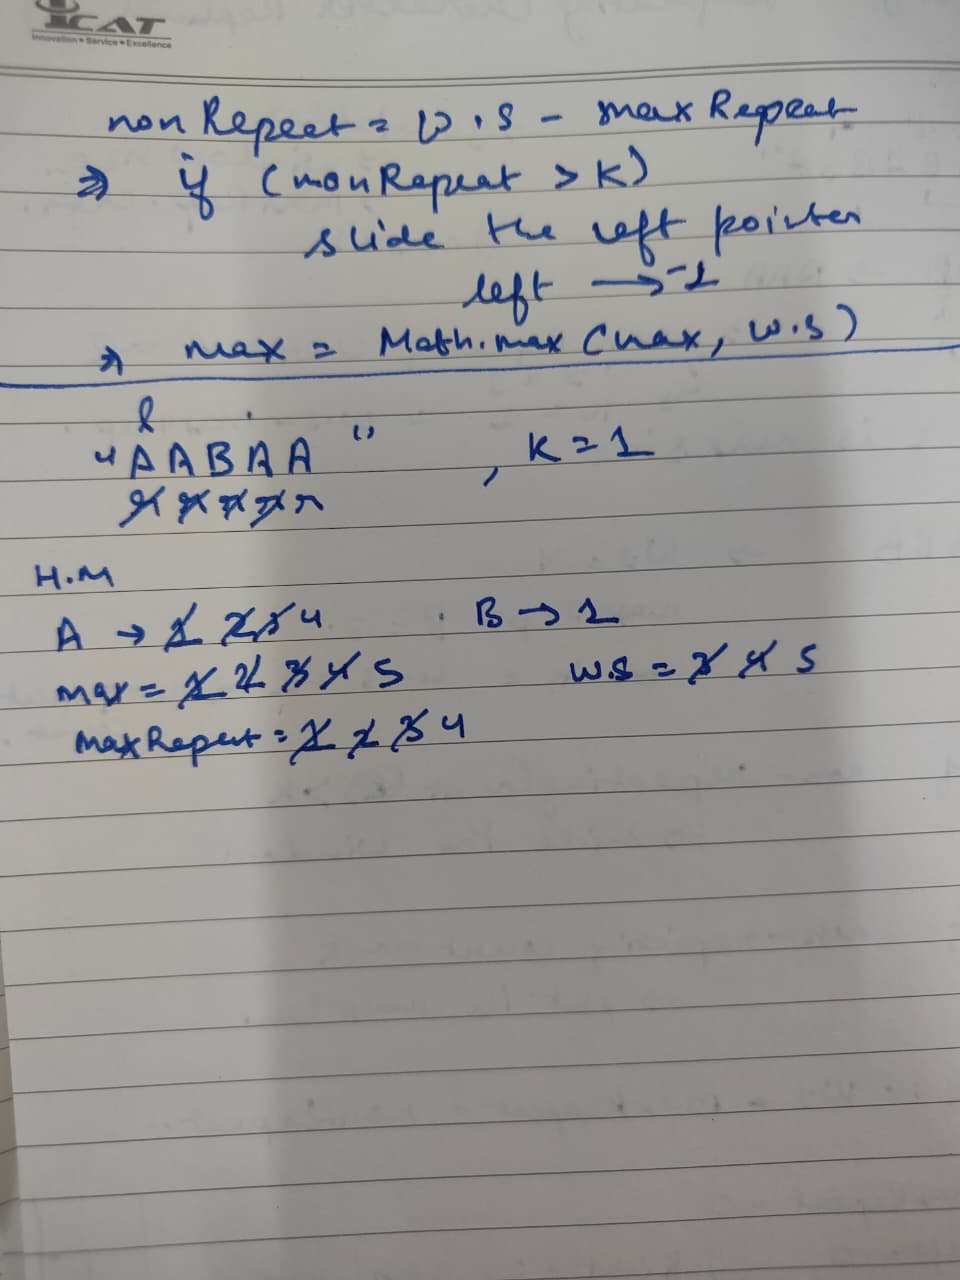 ICAT
Innovation • Service • Excellence
nonRepeat = W.S - maxRepeat
=> if (nonRepeat > K)
slide the left pointer
left → -1
→ max = Math.max (max, W.S)
l
"AABAA" , K = 1
r r r r r
H.M
A → 1 2 3 4 B → 1
max = 1 2 3 4 5 W.S = 3 4 5
maxRepeat = 1 2 3 4